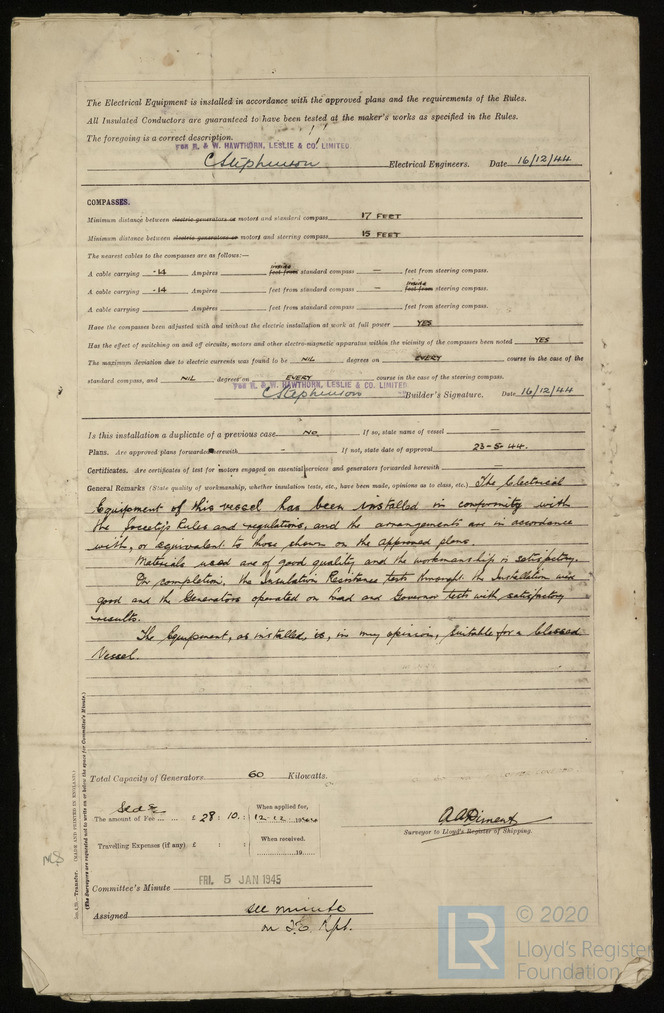 The Electrical Equipment is installed in accordance with the approved plans and the requirements of the Rules.
All Insulated Conductors are guaranteed to have been tested at the maker's works as specified in the Rules.
The foregoing is a correct description.
FOR R. & W. HAWTHORN, LESLIE & CO. LIMITED.
C Stephenson Electrical Engineers. Date 16/12/44
COMPASSES.
Minimum distance between electric generators or motors and standard compass 17 FEET
Minimum distance between electric generators or motors and steering compass 15 FEET
The nearest cables to the compasses are as follows:—
A cable carrying ·14 Ampères inside feet from standard compass — feet from steering compass.
A cable carrying ·14 Ampères feet from standard compass — inside feet from steering compass.
A cable carrying Ampères feet from standard compass feet from steering compass.
Have the compasses been adjusted with and without the electric installation at work at full power YES
Has the effect of switching on and off circuits, motors and other electro-magnetic apparatus within the vicinity of the compasses been noted YES
The maximum deviation due to electric currents was found to be NIL degrees on EVERY course in the case of the
standard compass, and NIL degrees on EVERY course in the case of the steering compass.
FOR R. & W. HAWTHORN, LESLIE & CO. LIMITED.
C Stephenson Builder's Signature. Date 16/12/44
Is this installation a duplicate of a previous case NO. If so, state name of vessel —
Plans. Are approved plans forwarded herewith - If not, state date of approval 23-5-44.
Certificates. Are certificates of test for motors engaged on essential services and generators forwarded herewith —
General Remarks (State quality of workmanship, whether insulation tests, etc., have been made, opinions as to class, etc.) The Electrical
Equipment of this vessel has been installed in conformity with
the Society's Rules and regulations, and the arrangements are in accordance
with, or equivalent to those shown on the approved plans.
Materials used are of good quality and the workmanship is satisfactory.
On completion, the Insulation Resistance tests throught the Installation were
good and the Generators operated on load and Governor tests with satisfactory
results.
The Equipment, as installed, is, in my opinion, suitable for a Classed
Vessel.
Total Capacity of Generators 60 Kilowatts.
The amount of Fee ... ... £ 28 : 10 :
When applied for,
12-12 1944
Travelling Expenses (if any) £ : :
When received.
19
A A Diment
Surveyor to Lloyd's Register of Shipping.
Committee's Minute FRI. 5 JAN 1945
Assigned see minute
on F.E. Rpt.
Transfer. (MADE AND PRINTED IN ENGLAND.)
(The Surveyors are requested not to write on or below the space for Committee's Minute.)
LR
© 2020
Lloyd's Register
Foundation